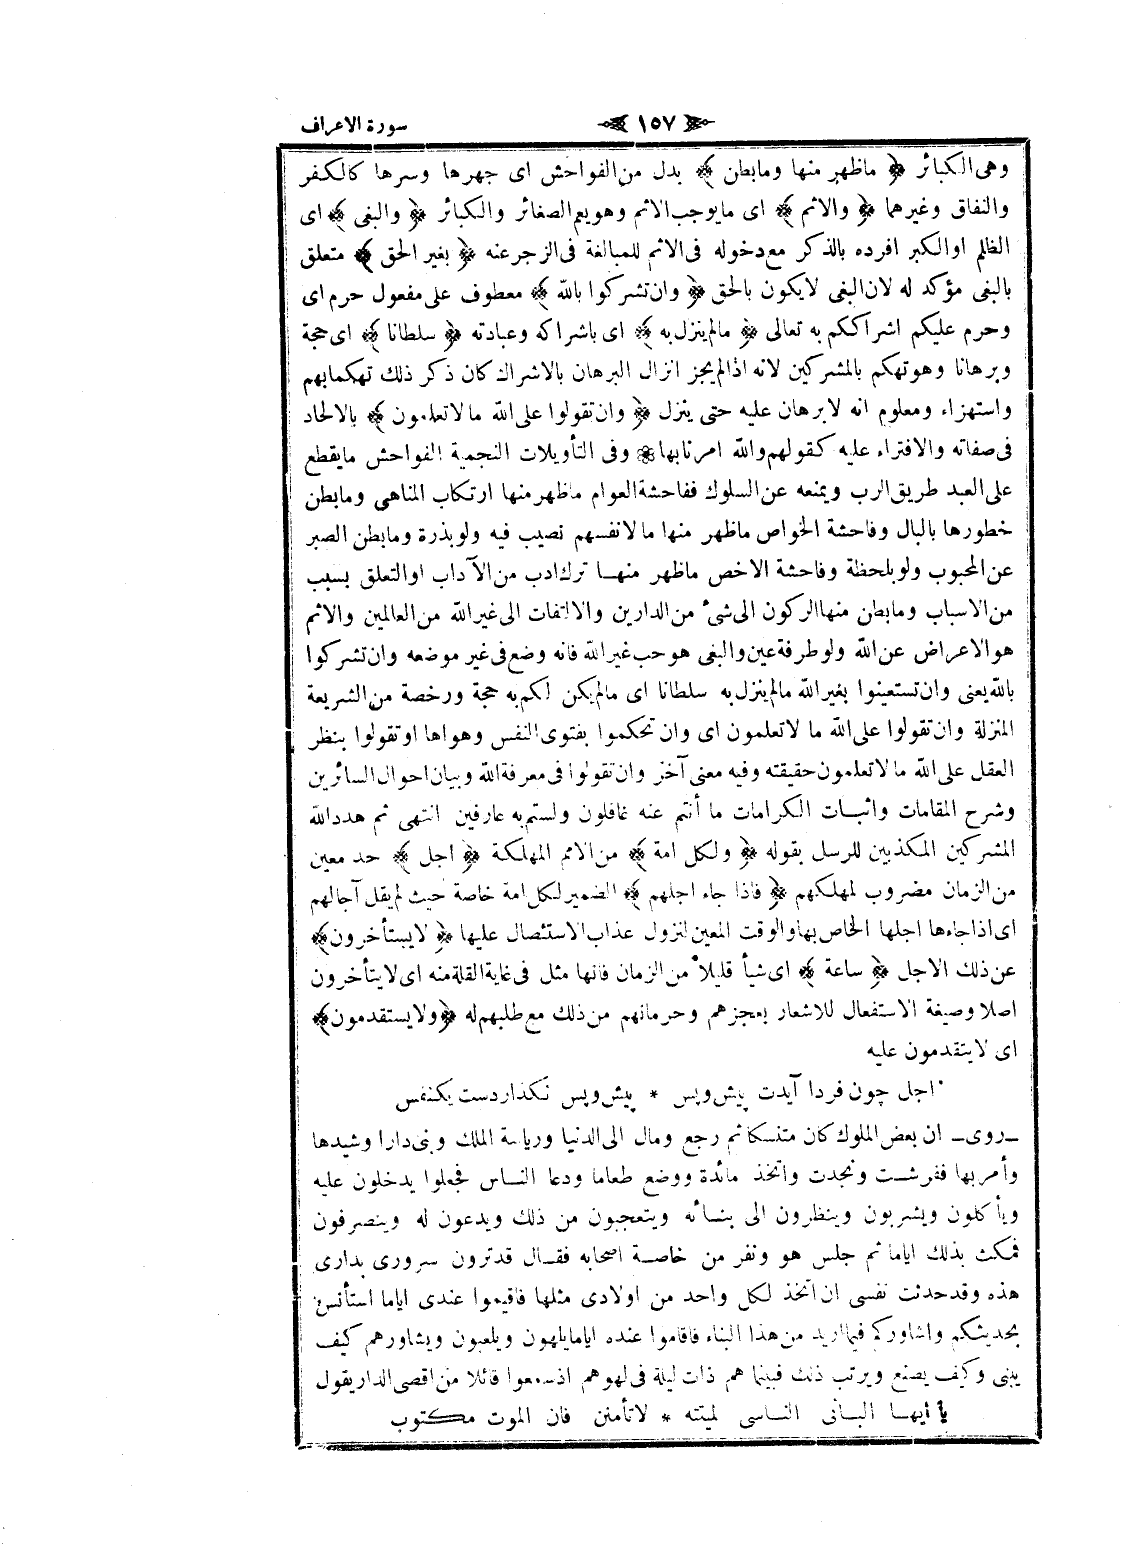 ﴿ ١٥٧ ﴾ سورة الاعراف
وهى الكبائر ﴿ ماظهر منها ومابطن ﴾ بدل من الفواحش اى جهرها وسرها كالكفر
والنفاق وغيرهما ﴿ والاثم ﴾ اى مايوجب الاثم وهو يعم الصغائر والكبائر ﴿ والبغى ﴾ اى
الظلم او الكبر افرده بالذكر مع دخوله فى الاثم للمبالغة فى الزجر عنه ﴿ بغير الحق ﴾ متعلق
بالبغى مؤكد له لان البغى لايكون بالحق ﴿ وان تشركوا بالله ﴾ معطوف على مفعول حرم اى
وحرم عليكم اشراككم به تعالى ﴿ مالم ينزل به ﴾ اى باشراكه وعبادته ﴿ سلطانا ﴾ اى حجة
وبرهانا وهو تهكم بالمشركين لانه اذا لم يجز انزال البرهان بالاشراك كان ذكر ذلك تهكما بهم
واستهزاء ومعلوم انه لابرهان عليه حتى ينزل ﴿ وان تقولوا على الله مالاتعلمون ﴾ بالالحاد
فى صفاته والافتراء عليه كقولهم والله امرنا بها ❀ وفى التأويلات النجمية الفواحش مايقطع
على العبد طريق الرب ويمنعه عن السلوك ففاحشة العوام ماظهر منها ارتكاب المناهى ومابطن
خطورها بالبال وفاحشة الخواص ماظهر منها مالانفسهم نصيب فيه ولو بذرة ومابطن الصبر
عن المحبوب ولو بلحظة وفاحشة الاخص ماظهر منها ترك ادب من الآداب او التعلق بسبب
من الاسباب ومابطن منها الركون الى شئ من الدارين والالتفات الى غير الله من العالمين والاثم
هو الاعراض عن الله ولو طرفة عين والبغى هو حب غير الله فانه وضع فى غير موضعه وان تشركوا
بالله يعنى وان تستعينوا بغير الله مالم ينزل به سلطانا اى مالم يكن لكم به حجة ورخصة من الشريعة
المنزلة وان تقولوا على الله ما لاتعلمون اى وان تحكموا بفتوى النفس وهواها او تقولوا بنظر
العقل على الله مالاتعلمون حقيقته وفيه معنى آخر وان تقولوا فى معرفة الله وبيان احوال السائرين
وشرح المقامات واثبات الكرامات ما أنتم عنه غافلون ولستم به عارفين انتهى ثم هدد الله
المشركين المكذبين للرسل بقوله ﴿ ولكل امة ﴾ من الامم المهلكة ﴿ اجل ﴾ حد معين
من الزمان مضروب لمهلكهم ﴿ فاذا جاء اجلهم ﴾ الضمير لكل امة خاصة حيث لم يقل آجالهم
اى اذا جاءها اجلها الخاص بها والوقت المعين لنزول عذاب الاستئصال عليها ﴿ لايستأخرون ﴾
عن ذلك الاجل ﴿ ساعة ﴾ اى شيأ قليلا من الزمان فانها مثل فى غاية القلة منه اى لايتأخرون
اصلا وصيغة الاستفعال للاشعار بعجزهم وحرمانهم من ذلك مع طلبهم له ﴿ ولايستقدمون ﴾
اى لايتقدمون عليه
اجل چون فردا آيدت پيش وپس * پيش وپس نكذاردت يكنفس
ـ روى ـ ان بعض الملوك كان متنسكا ثم رجع ومال الى الدنيا ورياسة الملك وبنى دارا وشيدها
وأمر بها ففرشت ونجدت واتخذ مائدة ووضع طعاما ودعا الناس فجعلوا يدخلون عليه
ويأكلون ويشربون وينظرون الى بنائه ويتعجبون من ذلك ويدعون له وينصرفون
فمكث بذلك اياما ثم جلس هو ونفر من خاصة اصحابه فقال قد ترون سرورى بدارى
هذه وقد حدثت نفسى ان اتخذ لكل واحد من اولادى مثلها فاقيموا عندى اياما استأنس
بحديثكم واشاوركم فيما اريد من هذا البناء فاقاموا عنده اياما يلهون ويلعبون ويشاورهم كيف
يبنى وكيف يصنع ويرتب ذلك فبينما هم ذات ليلة فى لهوهم اذ سمعوا قائلا من اقصى الدار يقول
يا أيها البانى الناسى لميتته * لاتأمنن فان الموت مكتوب